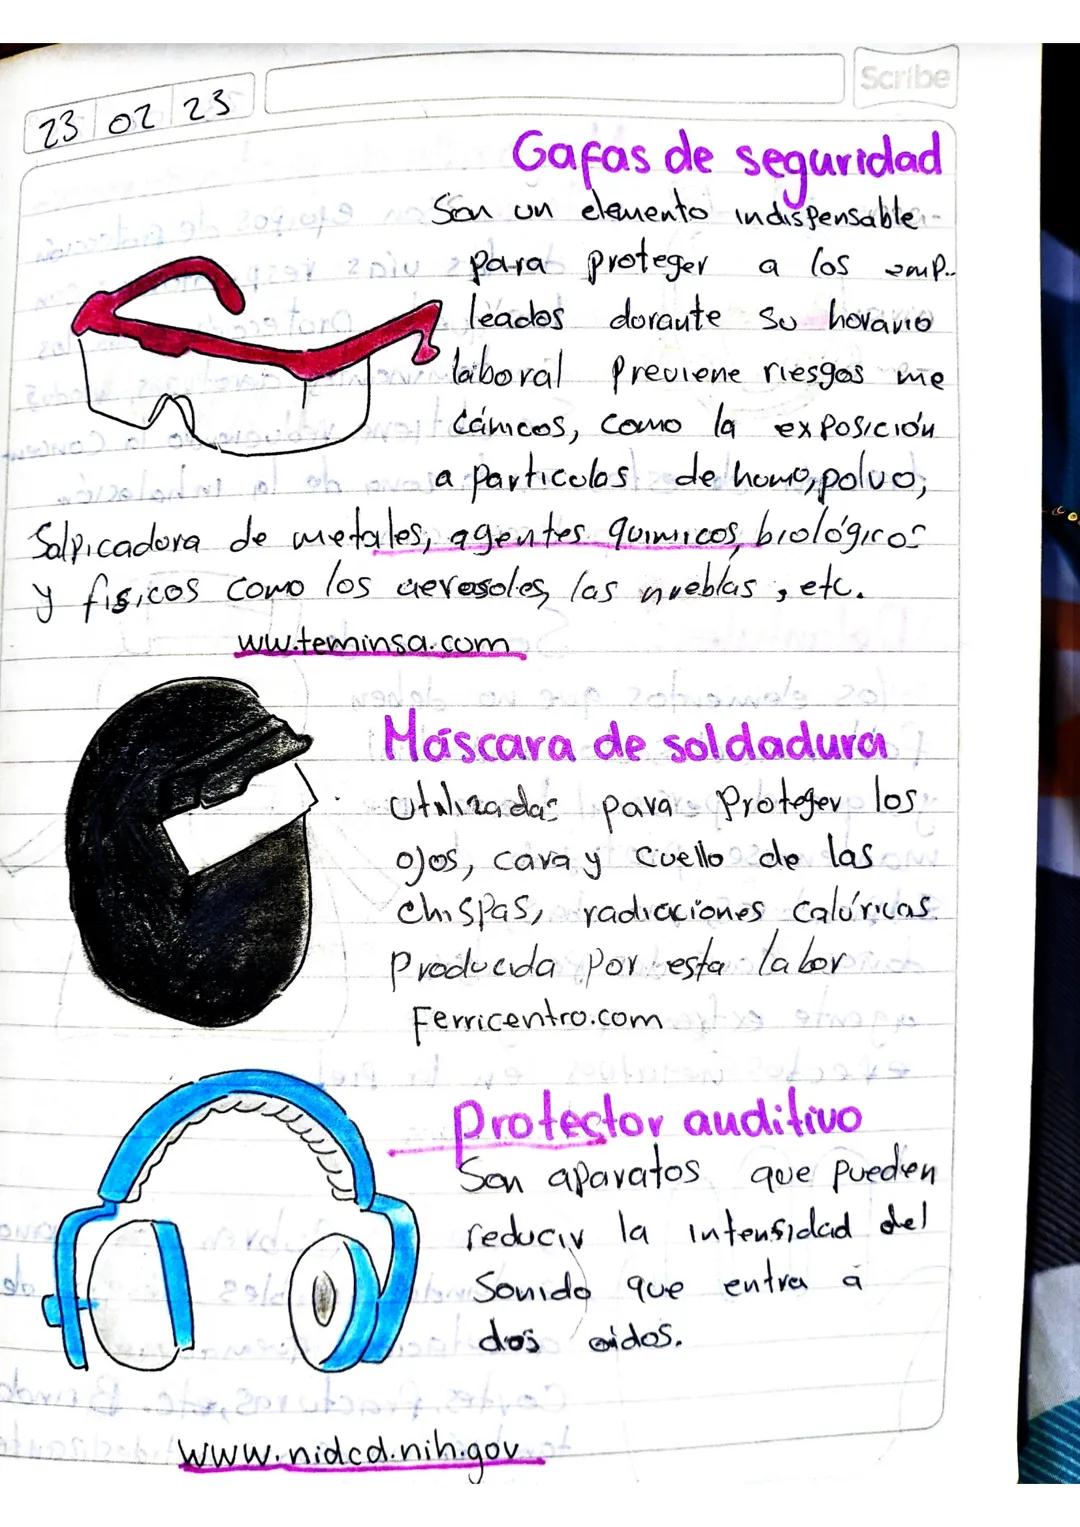 Scribe
23 02 23
Gafas de seguridad
Son un elemento indispensable
para proteger a los emp-
leados durante su horario
laboral Previene riesgos me
cánicos, como la exposición
a particulas de humo, polvo,
Salpicadura de metales, agentes quimicos, biológicos
y fisicos como los aerosoles, las nueblas, etc.
ww.teminsa.com
Máscara de soldadura
Utilizadas para Proteger los
ojos, cara y cuello de las
chispas, radiaciones calóricas
Producida Por esta labor
Ferricentro.com
Protector auditivo
Son aparatos que pueden
reducir la intensidad del
Sonido que entra a
dos oidos.
www.nidcd.nih.gov